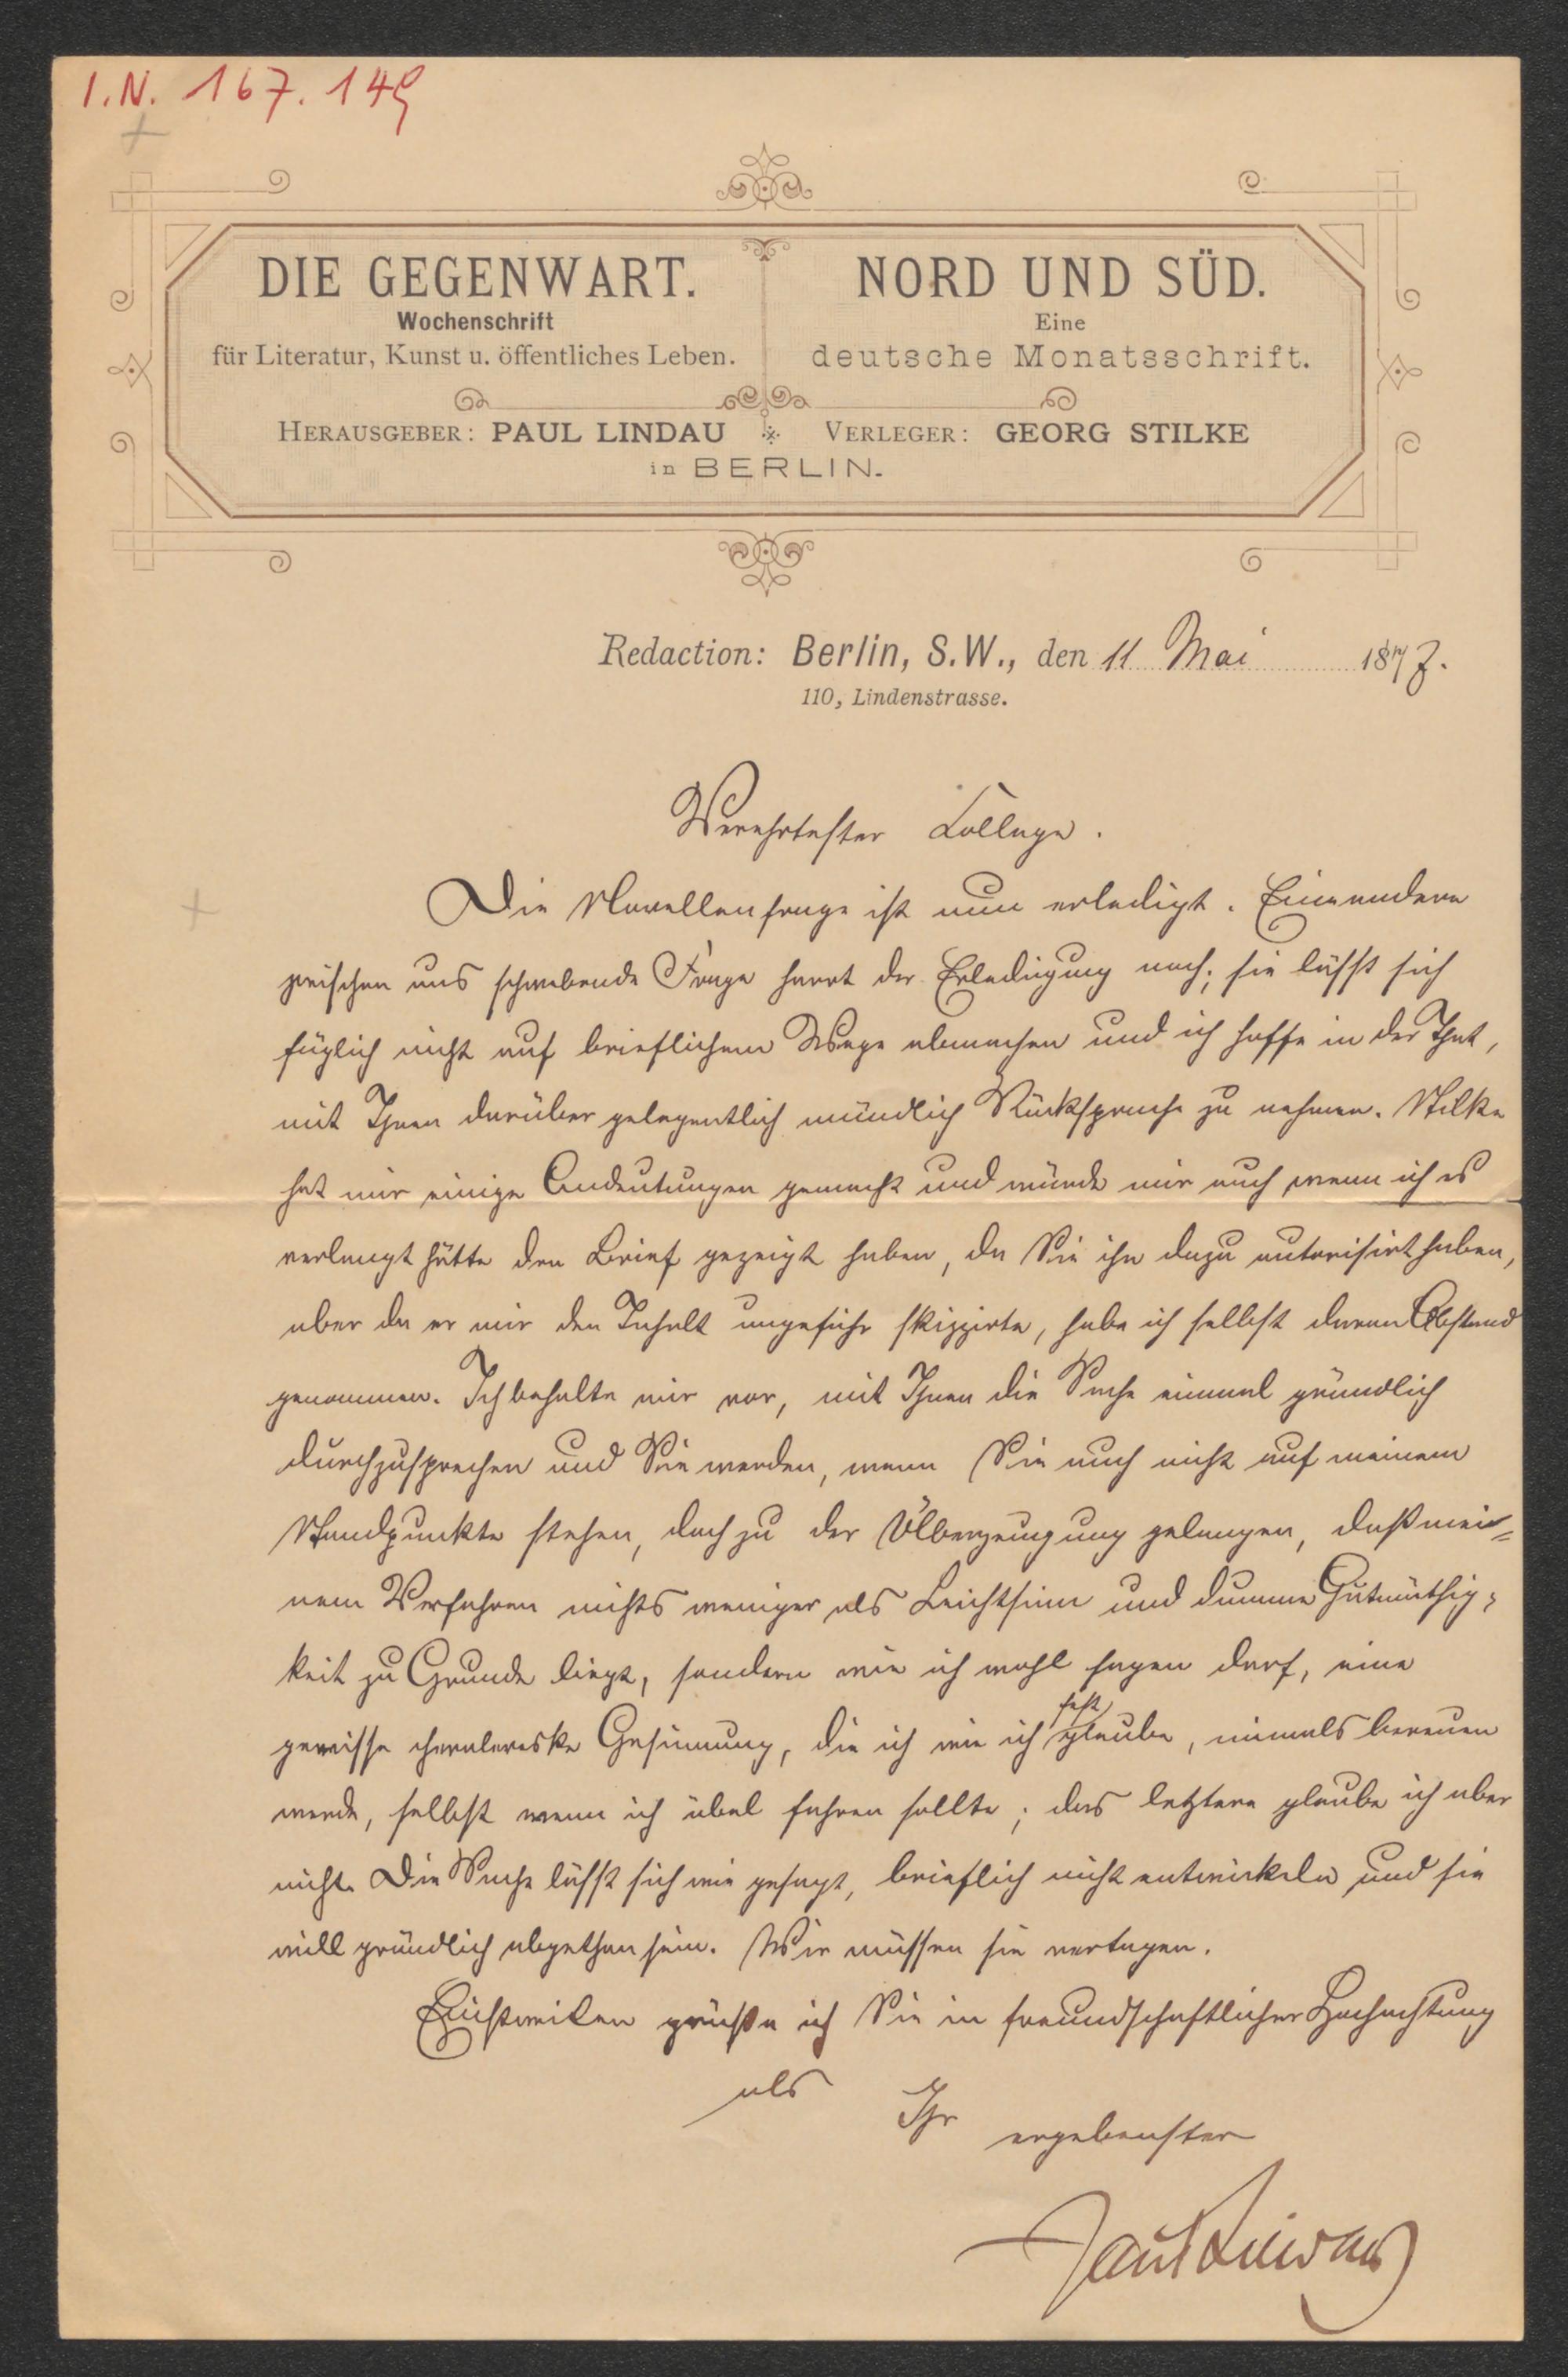 I.N. 167.149
DIE GEGENWART.
Wochenschrift
für Literatur, Kunst u. öffentliches Leben.
NORD UND SÜD.
Eine
deutsche Monatsschrift.
HERAUSGEBER: PAUL LINDAU VERLEGER: GEORG STILKE
in BERLIN.
Redaction: Berlin, S.W., den 11 Mai 1877.
110, Lindenstrasse.
Verehrtester Kollege.
Die Novellenfrage ist nun erledigt. Eine andere
zwischen uns schwebende Frage harrt der Erledigung noch; sie läßt sich
füglich nicht auf brieflichem Wege abmachen und ich hoffe in der That,
mit Ihnen darüber gelegentlich mündlich Rücksprache zu nehmen. Stilke
hat mir einige Andeutungen gemacht und würde mir auch wenn ich es
verlangt hätte den Brief gezeigt haben, da Sie ihn dazu autorisirt haben,
aber da er mir den Inhalt ungefähr skizzirte, habe ich selbst davon Abstand
genommen. Ich behalte mir vor, mit Ihnen die Sache einmal gründlich
durchzusprechen und Sie werden, wenn Sie auch nicht auf meinem
Standpunkte stehen, doch zu der Überzeugung gelangen, daß mei=
nem Verfahren nichts weniger als Leichtsinn und dumme Gutmüthig=
keit zu Grunde liegt, sondern wie ich wohl sagen darf, eine
gewisse chevalereske Gesinnung, die ich wie ich fest glaube, niemals bereuen
werde, selbst wenn ich übel fahren sollte; das letztere glaube ich aber
nicht. Die Sache läßt sich wie gesagt, brieflich nicht entwickeln und sie
will gründlich abgethan sein. Wir müssen sie vertagen.
Einstweilen grüße ich Sie in freundschaftlicher Hochachtung
als Ihr ergebenster
Paul Lindau